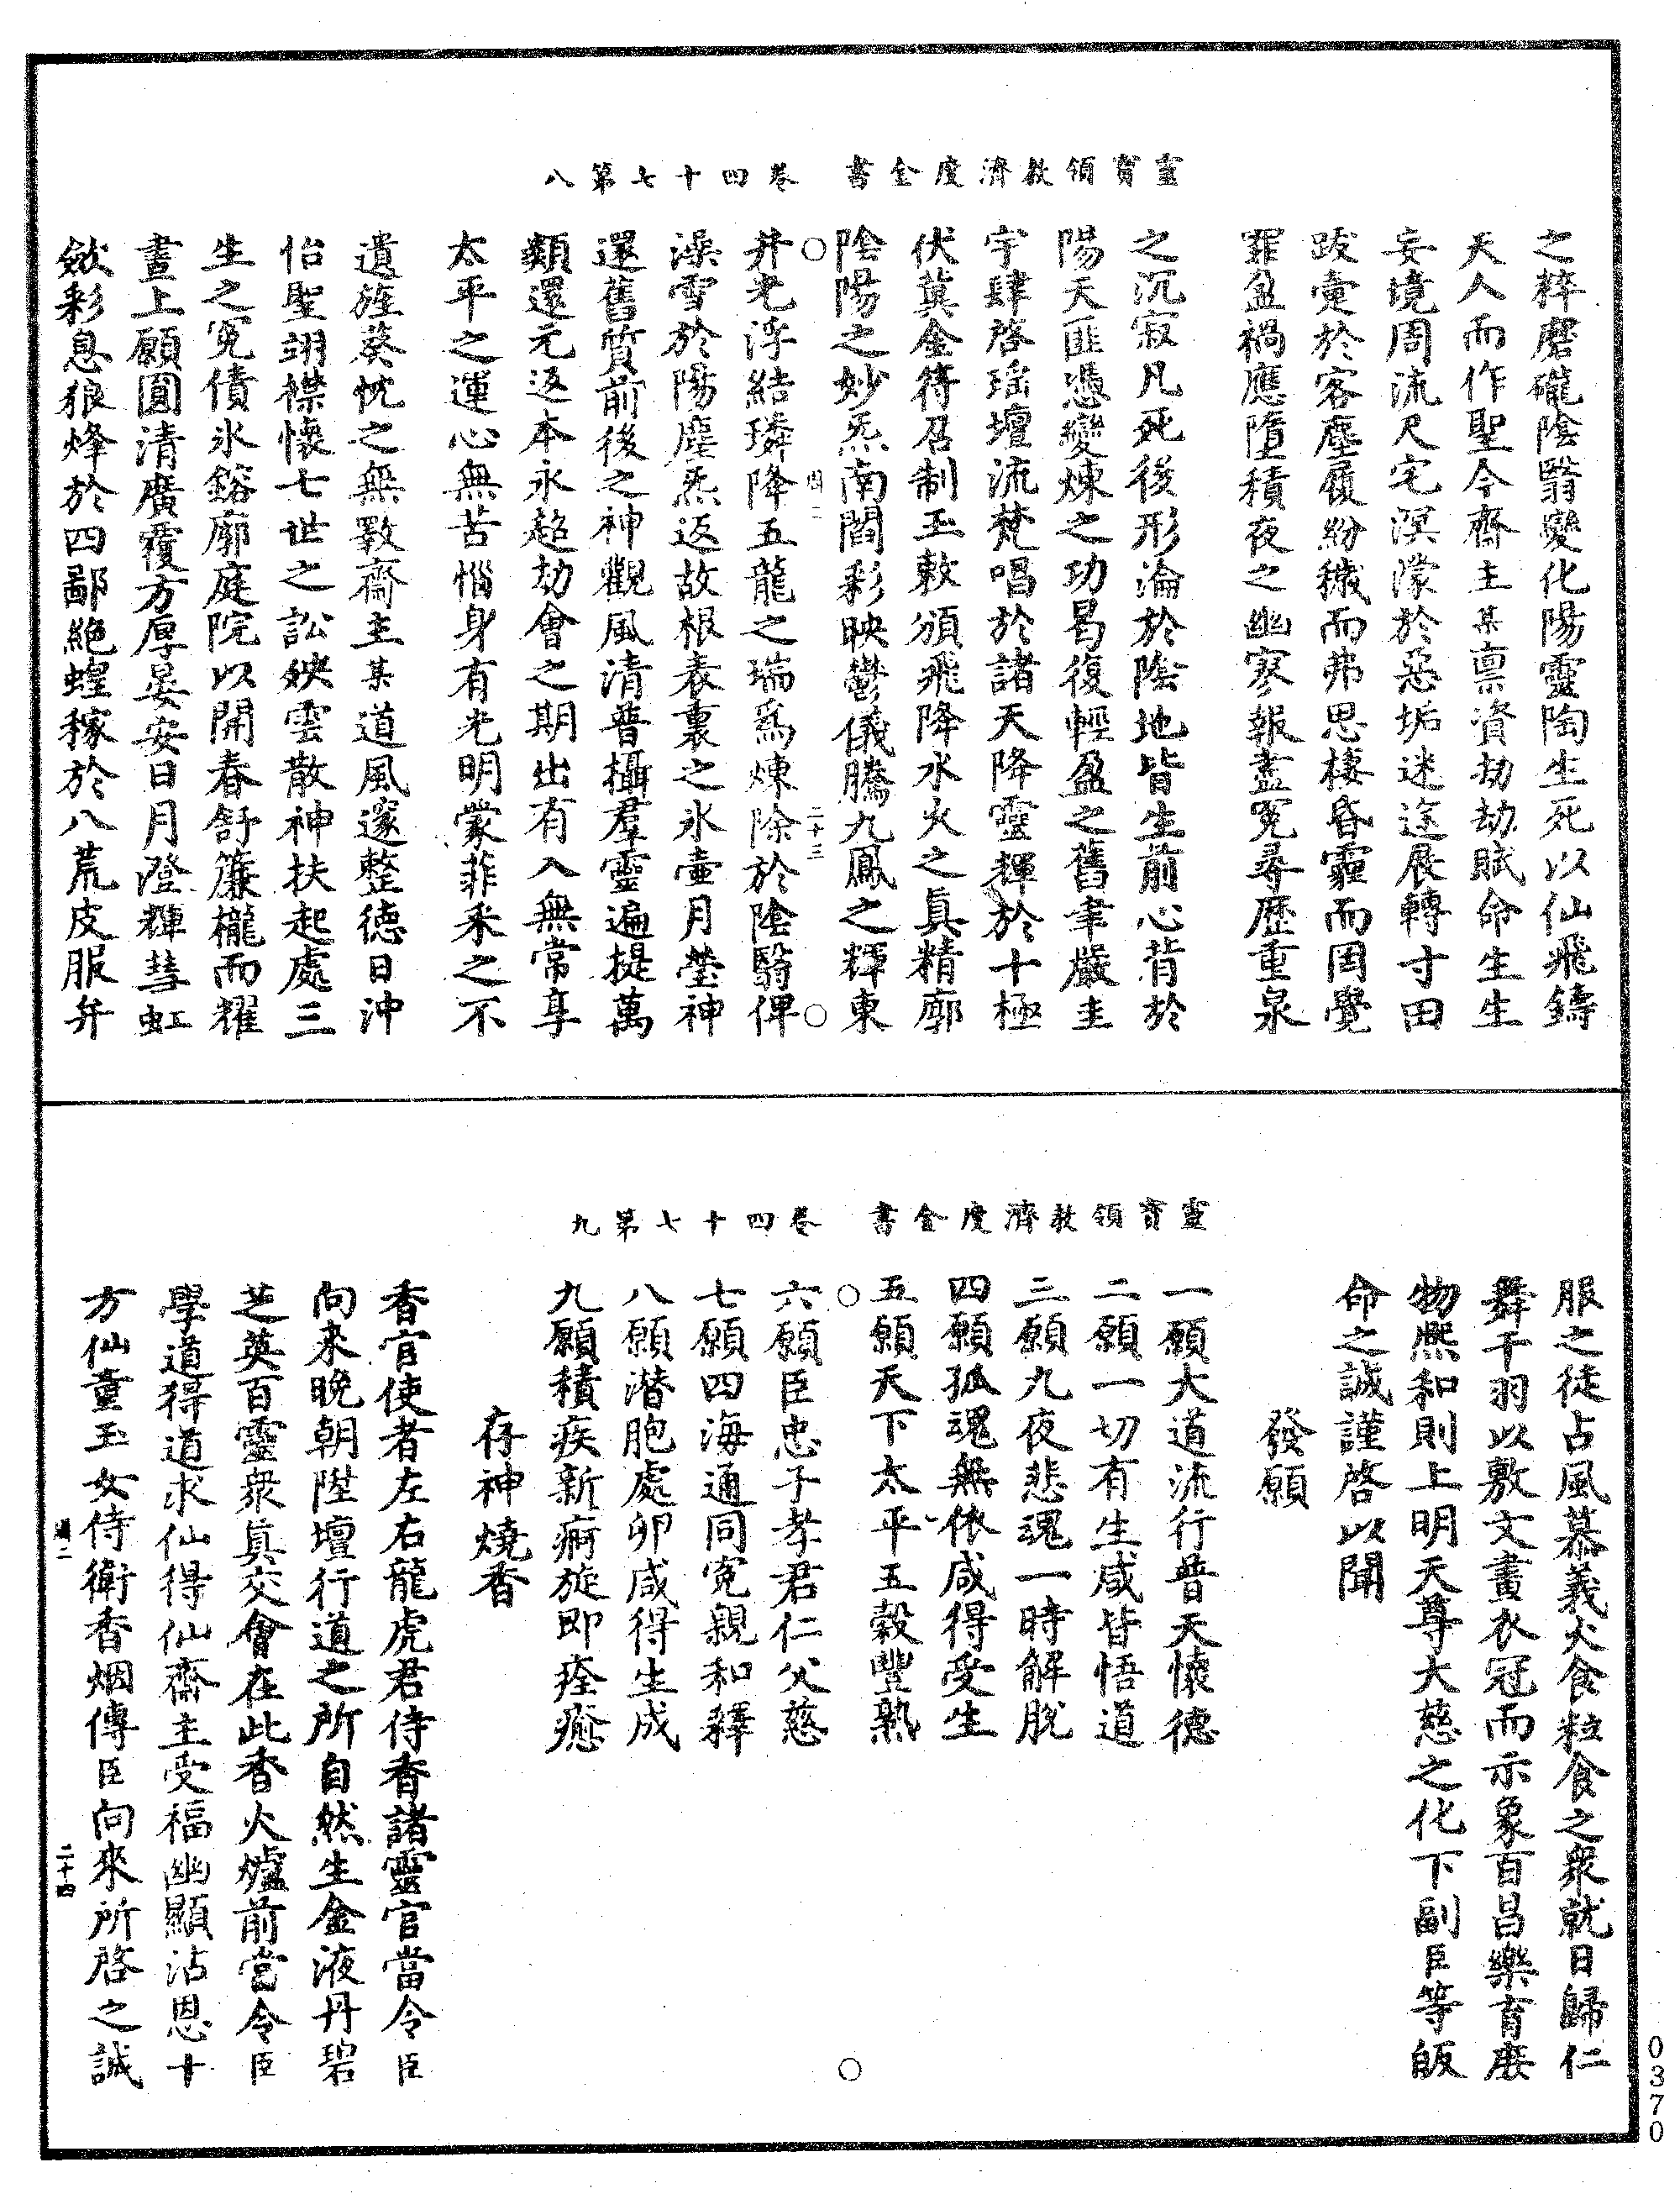 靈寶領教濟度金書　卷四十七第八
之粹磨礲陰翳變化陽靈陶生死以仙飛鑄
天人而作聖今齋主某禀資劫劫賦命生生
妄境周流尺宅溟濛於惡垢迷途展轉寸田
跋疐於客塵履紛穢而弗思棲昏霾而罔覺
罪盈禍應墮積夜之幽寥報盡冤尋歷重泉
之沉寂凡死後形淪於陰地皆生前心背於
陽天匪憑變煉之功曷復輕盈之舊聿嚴圭
宇肆啓瑶壇流梵唱於諸天降靈輝於十極
伏冀金符召制玉敕頒飛降水火之眞精廓
陰陽之妙炁南閻彩映鬱儀騰九鳳之輝東
井光浮結璘降五龍之瑞爲煉除於陰翳俾
澡雪於陽塵炁返故根表裏之氷壷月瑩神
還舊質前後之神觀風清普攝羣靈遍提萬
類還元返本永超劫會之期出有入無常享
太平之運心無苦惱身有光明蒙菲釆之不
遺旌葵忱之無斁齋主某道風邃整德日沖
怡聖翊襟懷七世之訟妷雲散神扶起處三
生之冤債氷鎔廓庭院以開春舒簾櫳而耀
晝上願圓清廣覆方厚晏安日月澄輝彗虹
斂彩息狼烽於四鄙絶蝗稼於八荒皮服弁
四二
二十三
靈寶領教濟度金書　卷四十七第九
服之徒占風慕義火食粒食之衆就日歸仁
舞干羽以敷文畫衣冠而示象百昌樂育庶
物熈和則上明天尊大慈之化下副臣等皈
命之誠謹啓以聞
發願
一願大道流行普天懷德
二願一切有生咸皆悟道
三願九夜悲魂一時解脫
四願孤魂無依咸得受生
五願天下太平五穀豐熟
六願臣忠子孝君仁父慈
七願四海通同冤親和釋
八願潜胞處卵咸得生成
九願積疾新痾旋即痊癒
存神燒香
香官使者左右龍虎君侍香諸靈官當令臣
向來晚朝陞壇行道之所自然生金液丹碧
芝英百靈衆眞交會在此香火爐前當令臣
學道得道求仙得仙齋主受福幽顯沾恩十
方仙童玉女侍衛香烟傳臣向來所啓之誠
二十四
0370